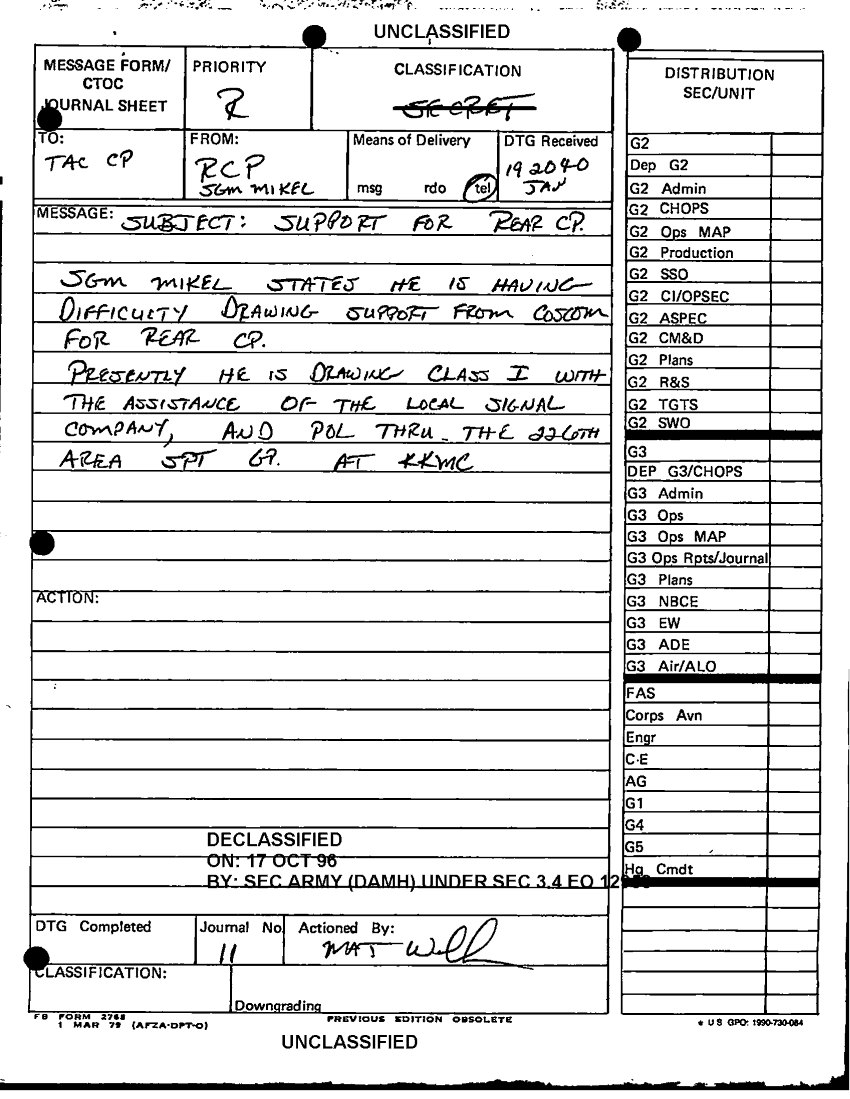 UNCLASSIFIED
MESSAGE FORM/
CTOC
JOURNAL SHEET
PRIORITY
R
CLASSIFICATION
SECRET
TO:
TAC CP
FROM:
RCP
SGM MIKEL
Means of Delivery
msg rdo tel
DTG Received
192040
JAN
MESSAGE: SUBJECT: SUPPORT FOR REAR CP.
SGM MIKEL STATES HE IS HAVING
DIFFICULTY DRAWING SUPPORT FROM COSCOM
FOR REAR CP.
PRESENTLY HE IS DRAWING CLASS I WITH
THE ASSISTANCE OF THE LOCAL SIGNAL
COMPANY, AND POL THRU THE 226TH
AREA SPT GP. AT KKMC
ACTION:
DECLASSIFIED
ON: 17 OCT 96
BY: SEC ARMY (DAMH) UNDER SEC 3.4 EO
DTG Completed
Journal No
11
Actioned By:
MAT
CLASSIFICATION:
Downgrading
FB FORM 2768
1 MAR 79 (AFZA-DPT-O)
PREVIOUS EDITION OBSOLETE
UNCLASSIFIED
DISTRIBUTION
SEC/UNIT
G2
Dep G2
G2 Admin
G2 CHOPS
G2 Ops MAP
G2 Production
G2 SSO
G2 CI/OPSEC
G2 ASPEC
G2 CM&D
G2 Plans
G2 R&S
G2 TGTS
G2 SWO
G3
DEP G3/CHOPS
G3 Admin
G3 Ops
G3 Ops MAP
G3 Ops Rpts/Journal
G3 Plans
G3 NBCE
G3 EW
G3 ADE
G3 Air/ALO
FAS
Corps Avn
Engr
C-E
AG
G1
G4
G5
Hq Cmdt
* U S GPO: 1990-730-084